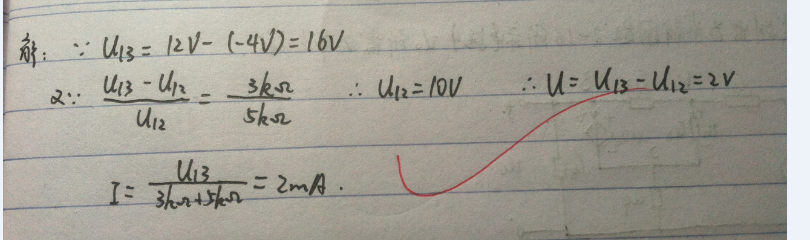 解: ∵ U13 = 12V - (-4V) = 16V
又∵ (U13 - U12) / U12 = 3kΩ / 5kΩ ∴ U12 = 10V ∴ U = U13 - U12 = 2V
I = U13 / (3kΩ + 5kΩ) = 2mA.